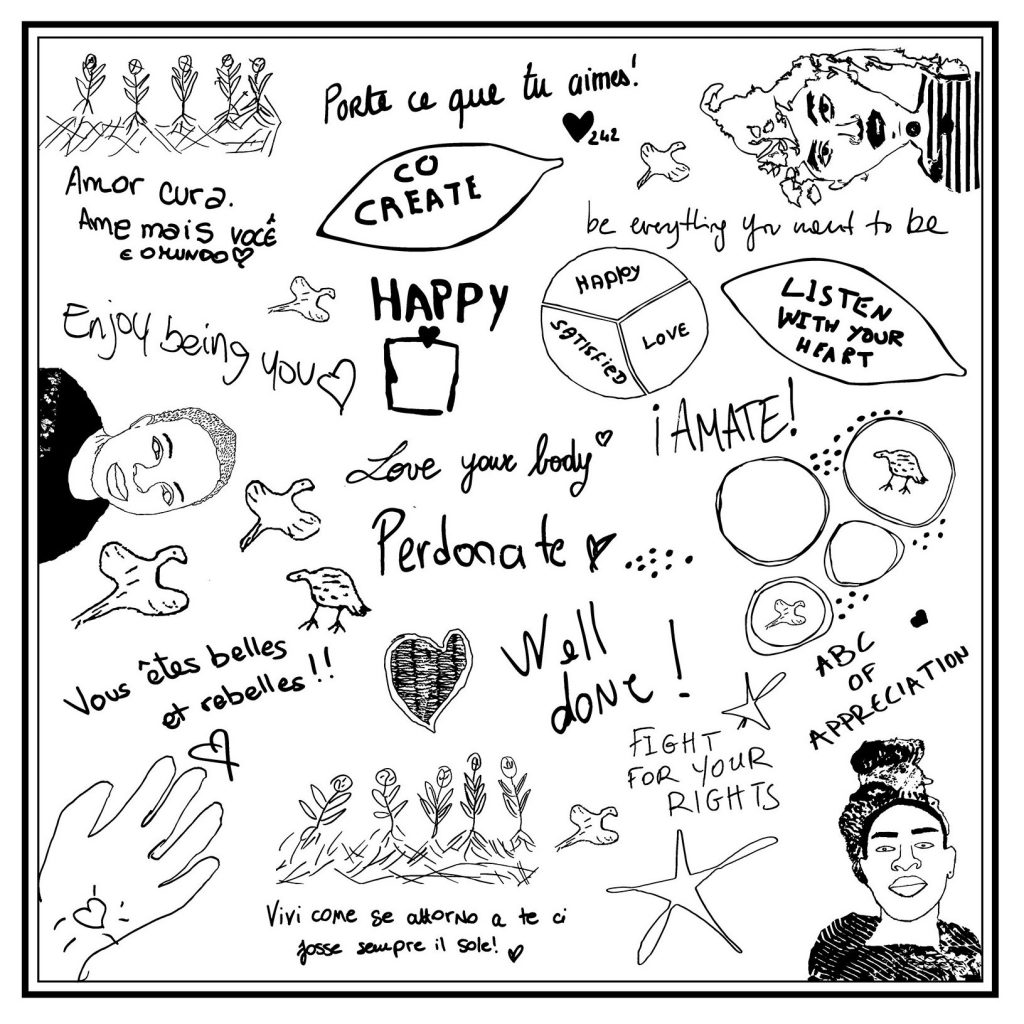 Porte ce que tu aimes!
242
CO
CREATE
Amor cura.
Ame mais você
e o mundo
be everything you want to be
HAPPY
LOVE
SATISFIED
LISTEN
WITH YOUR
HEART
HAPPY
Enjoy being you
¡AMATE!
Love your body
Perdonate
Well
done!
Vous êtes belles
et rebelles!!
ABC
OF
APPRECIATION
FIGHT
FOR YOUR
RIGHTS
Vivi come se attorno a te ci
fosse sempre il sole!